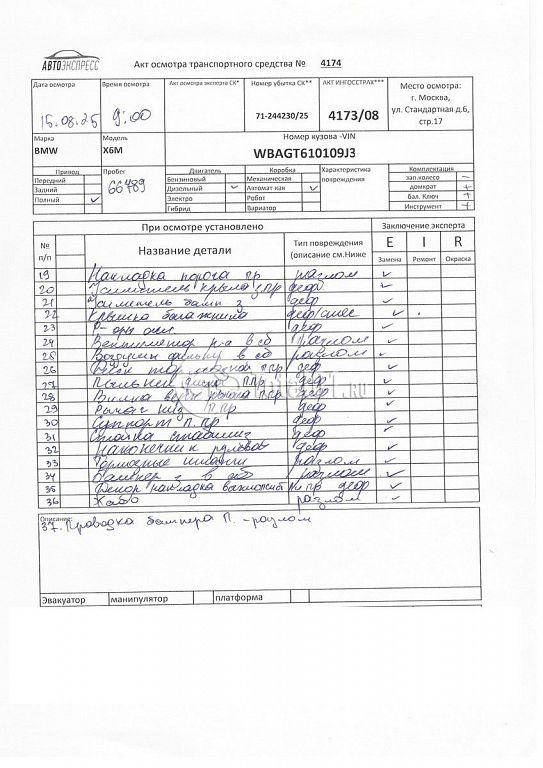 АВТОЭКСПРЕСС
Акт осмотра транспортного средства № 4174
Дата осмотра
15.08.25
Время осмотра
9:00
Акт осмотра эксперта СК*
Номер убытка СК**
71-244230/25
АКТ ИНГОССТРАХ***
4173/08
Место осмотра:
г. Москва,
ул. Стандартная д.6,
стр.17
Марка
BMW
Модель
X6M
Номер кузова -VIN
WBAGT610109J3
Привод
Передний
Задний
Полный ✓
Пробег
66489
Двигатель
Бензиновый
Дизельный ✓
Электро
Гибрид
Коробка
Механическая
Автомат-кая ✓
Робот
Вариатор
Характеристика
повреждения
Комплектация
зап.колесо −
домкрат +
бал. Ключ +
Инструмент +
При осмотре установлено
Заключение эксперта
№
п/п
Название детали
Тип повреждения
(описание см.Ниже
E I R
Замена Ремонт Окраска
19 Накладка порога пр разлом ✓
20 Усилитель крыла з.пр деф ✓
21 Усилитель бамп з деф ✓
22 Крышка багажника деф/смес ✓
23 деф ✓
24 Вентилятор р-а в сб разлом ✓
25 в сб разлом ✓
26 п.пр деф ✓
27 Пыльник диска п.пр деф ✓
28 п.пр деф ✓
29 Рычаг низ п.пр деф ✓
30 Суппорт п.пр деф ✓
31 Стойка стабилиз деф ✓
32 Наконечник рулевой деф ✓
33 Тормозные шланги разлом ✓
34 Бампер з в сб разлом ✓
35 накладка пр деф ✓
36 разлом ✓
Описание:
37. Проводка бампера П. -разлом
Эвакуатор
манипулятор
платформа